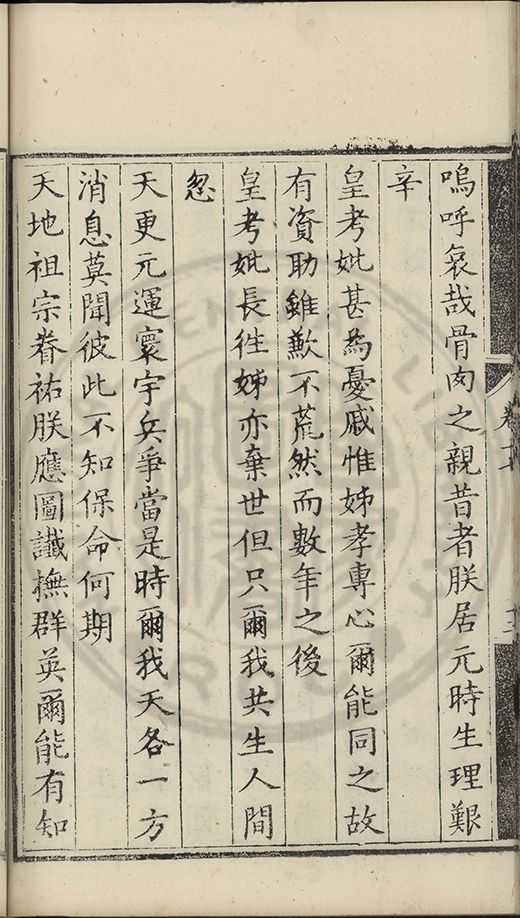 嗚呼哀哉骨肉之親昔者朕居元時生理艱
辛
皇考妣甚為憂戚惟姊孝專心爾能同之故
有資助雖歉不荒然而數年之後
皇考妣長徃姊亦棄世但只爾我共生人間
忽
天更元運寰宇兵爭當是時爾我天各一方
消息莫聞彼此不知保命何期
天地祖宗眷祐朕應圖讖撫群英爾能有知